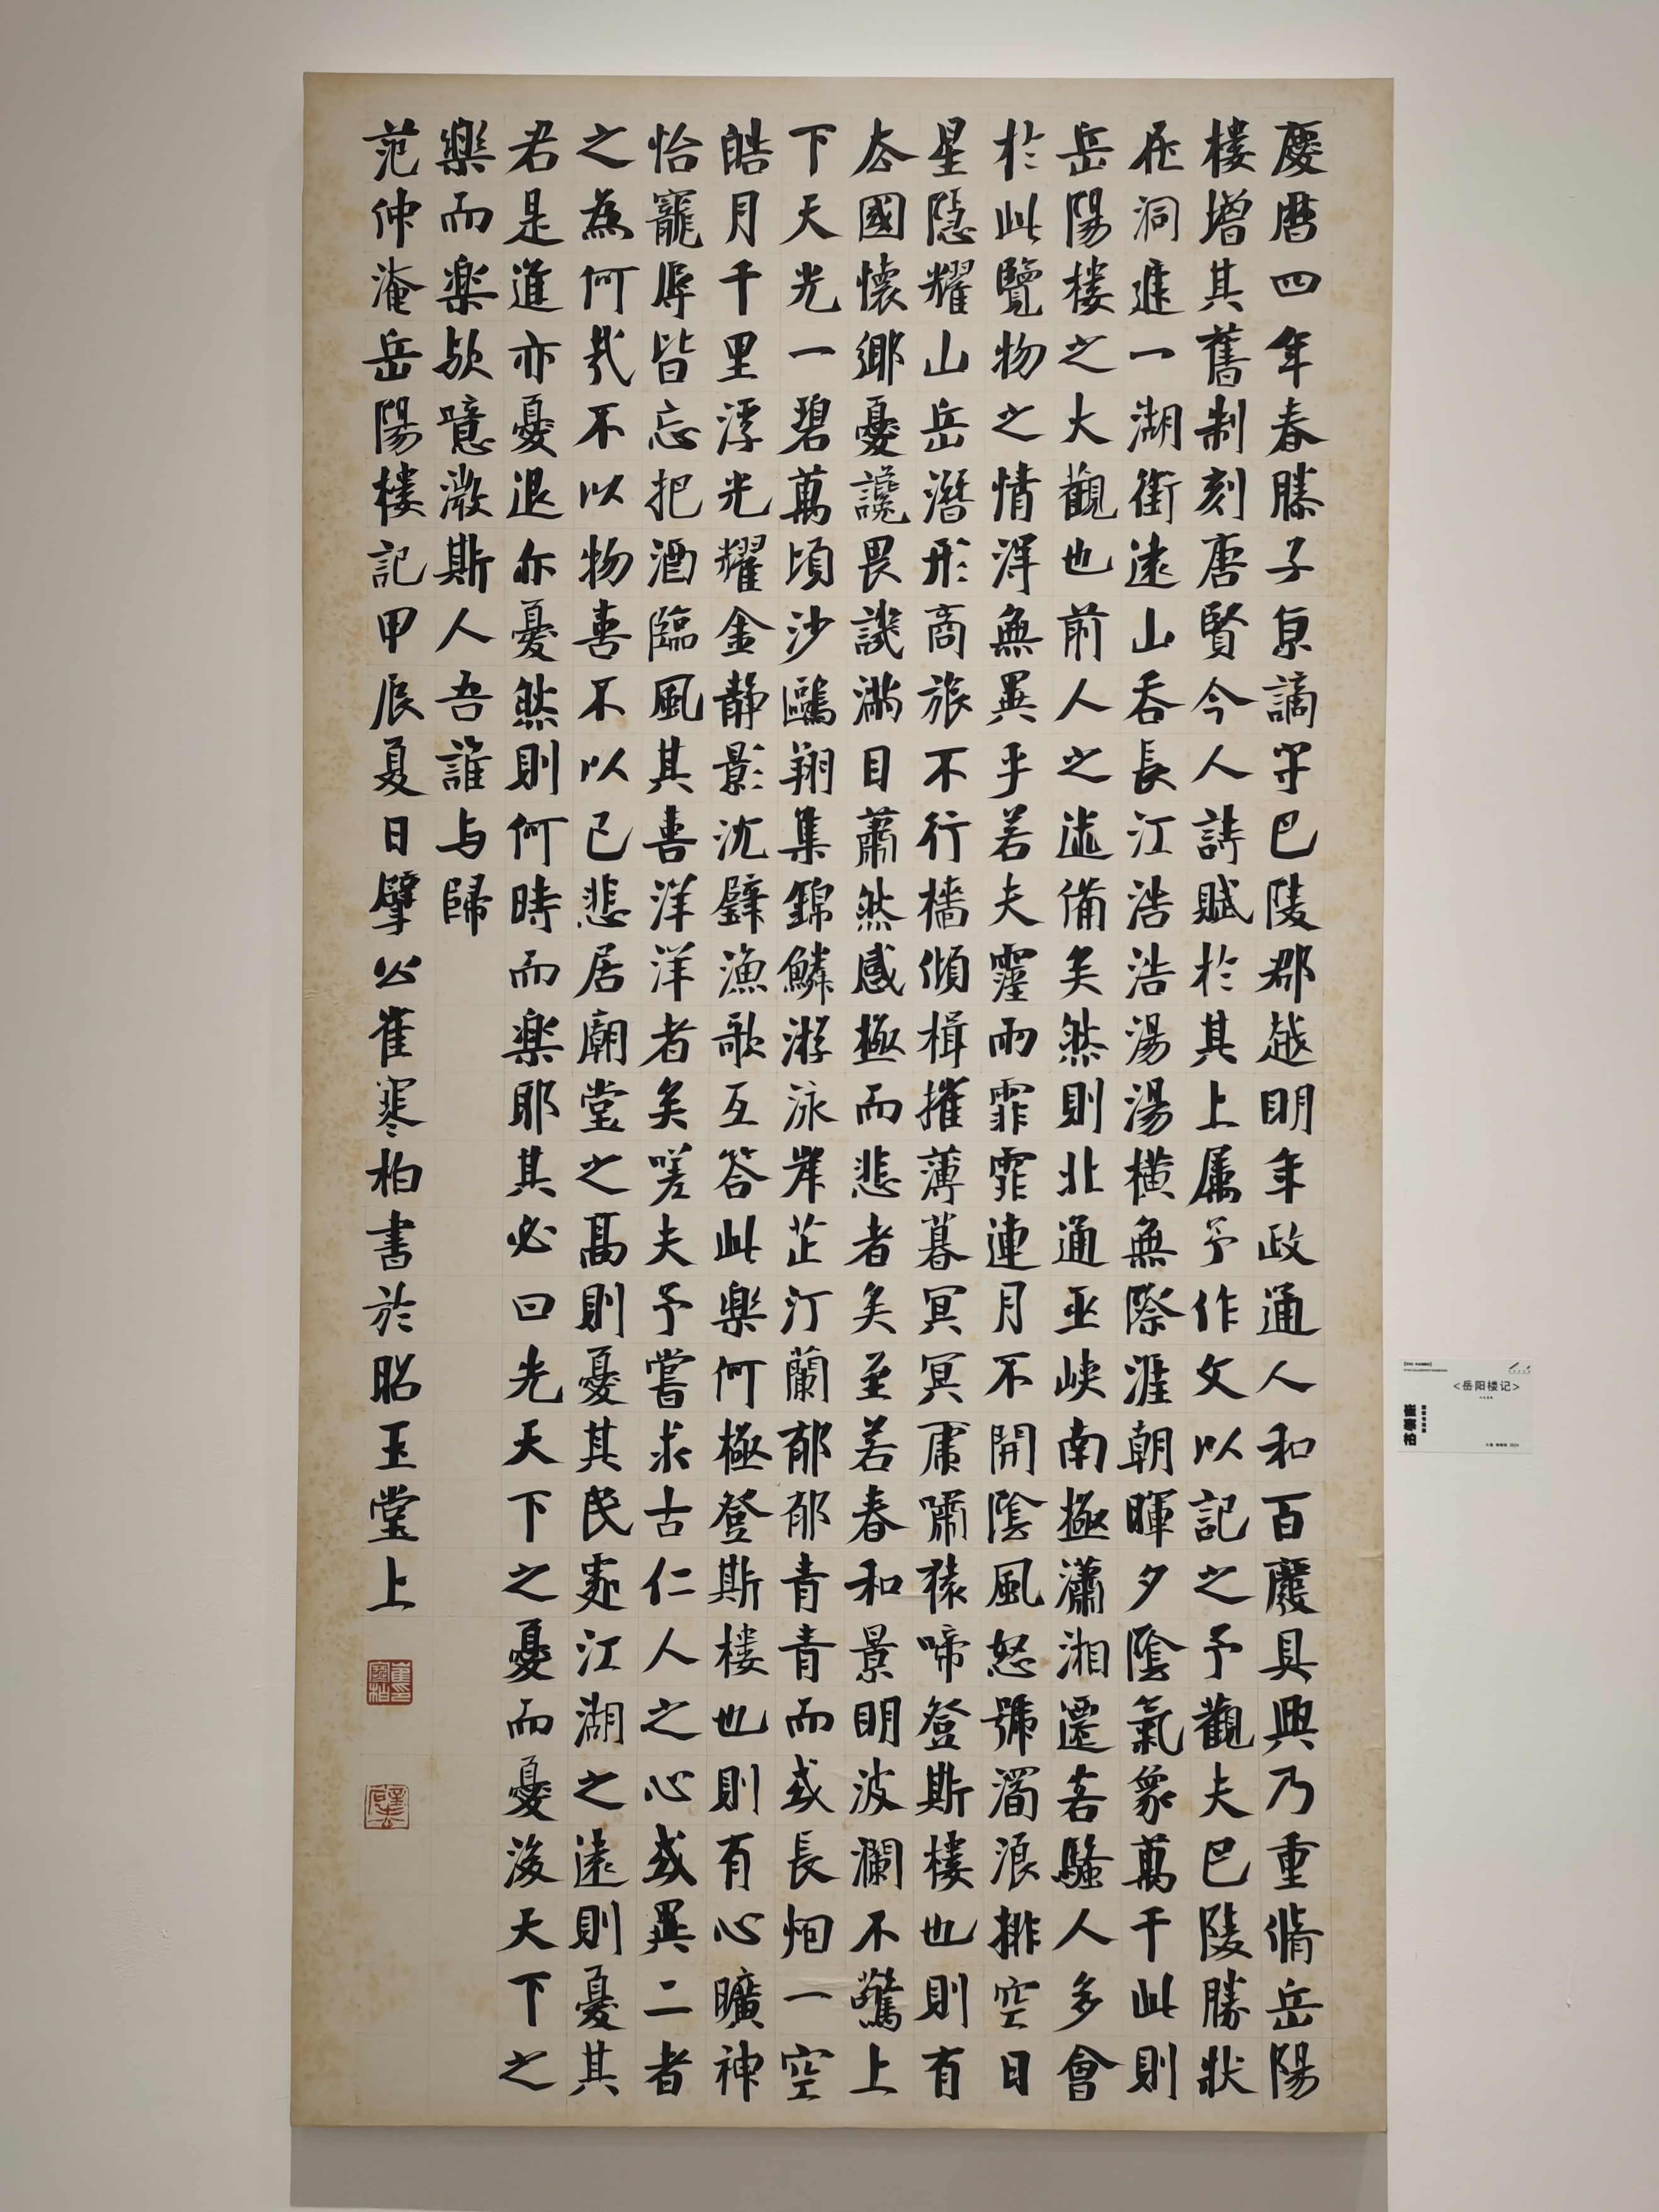 慶曆四年春滕子京謫守巴陵郡越明年政通人和百廢具興乃重脩岳陽
樓增其舊制刻唐賢今人詩賦於其上屬予作文以記之予觀夫巴陵勝狀
在洞庭一湖銜遠山吞長江浩浩湯湯橫無際涯朝暉夕陰氣象萬千此則
岳陽樓之大觀也前人之述備矣然則北通巫峽南極瀟湘遷客騷人多會
於此覽物之情得無異乎若夫霪雨霏霏連月不開陰風怒號濁浪排空日
星隱耀山岳潛形商旅不行檣傾楫摧薄暮冥冥虎嘯猿啼登斯樓也則有
去國懷鄉憂讒畏譏滿目蕭然感極而悲者矣至若春和景明波瀾不驚上
下天光一碧萬頃沙鷗翔集錦鱗游泳岸芷汀蘭郁郁青青而或長烟一空
皓月千里浮光耀金靜影沈璧漁歌互答此樂何極登斯樓也則有心曠神
怡寵辱皆忘把酒臨風其喜洋洋者矣嗟夫予嘗求古仁人之心或異二者
之為何哉不以物喜不以己悲居廟堂之高則憂其民處江湖之遠則憂其
君是進亦憂退亦憂然則何時而樂耶其必曰先天下之憂而憂後天下之
樂而樂歟噫微斯人吾誰与歸
范仲淹岳陽樓記甲辰夏日擘公崔寒柏書於昭玉堂上
<岳阳楼记>
崔寒柏